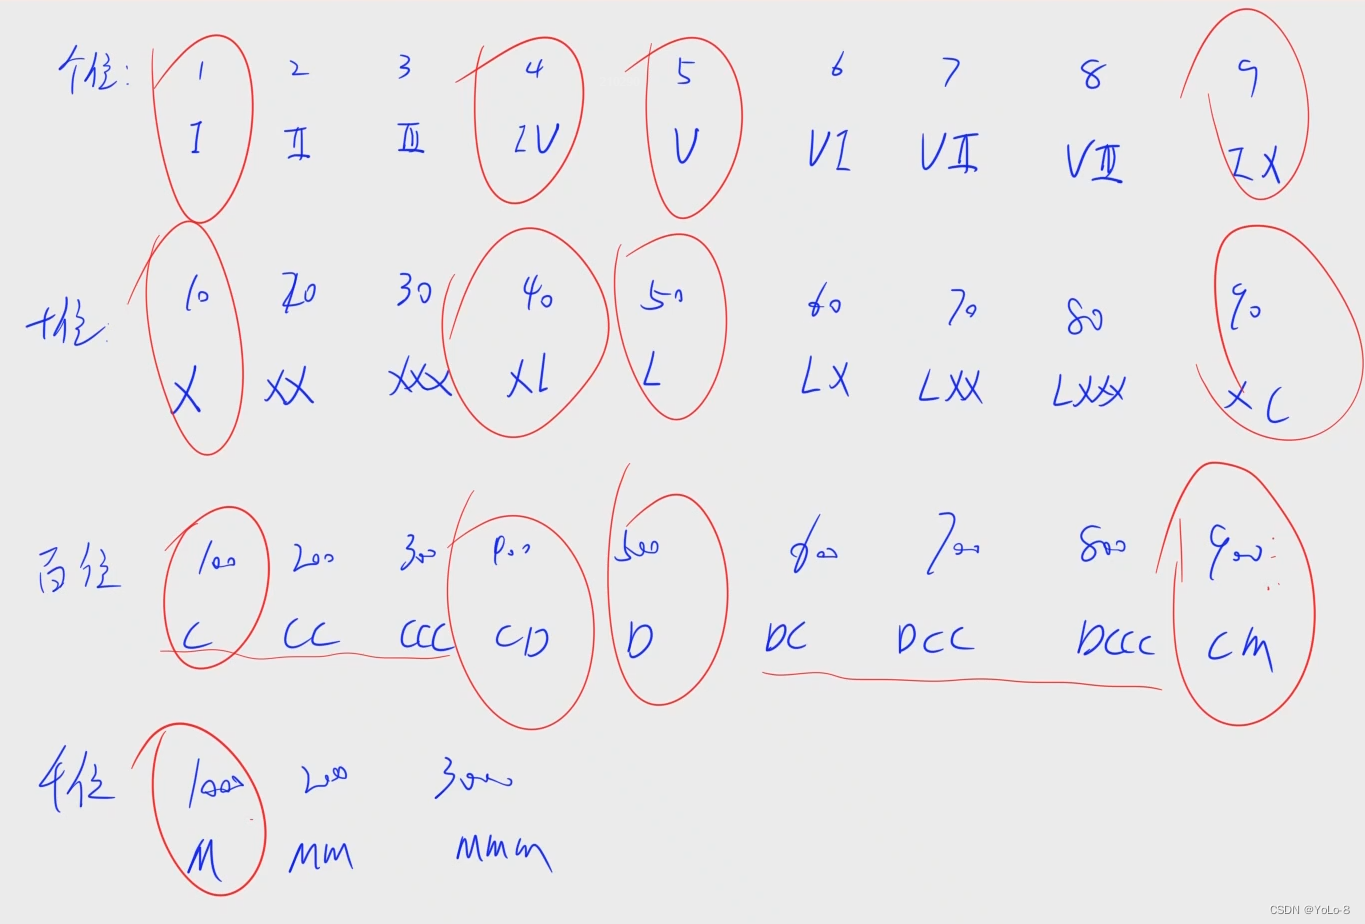 个位: 1 2 3 4 5 6 7 8 9
I II III IV V VI VII VIII IX
十位: 10 20 30 40 50 60 70 80 90
X XX XXX XL L LX LXX LXXX XC
百位 100 200 300 400 500 600 700 800 900
C CC CCC CD D DC DCC DCCC CM
千位 1000 2000 3000
M MM MMM
CSDN @YoLo-8